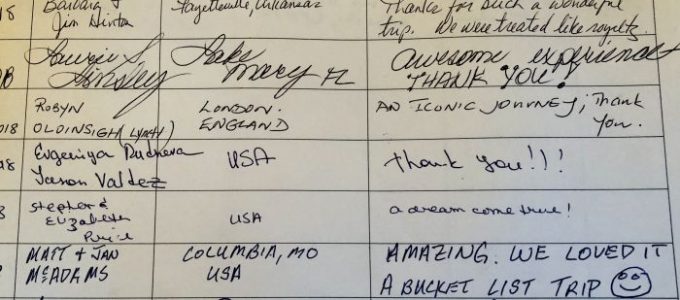 18 Barbara & Fayetteville, Arkansas Thanks for such a wonderful
Jim Hinton trip. We were treated like royalty.
Laurie S. Lake awesome experience
Lindley Mary FL THANK YOU!
ROBYN LONDON. AN ICONIC JOURNEY, Thank
018 OLDINSIGH (LYNCH) ENGLAND You.
18 Evgeniya USA thank you!)!
Jason Valdez
Stephen & USA a dream come true!
Elizabeth
Price
MATT + JAN COLUMBIA, MO AMAZING. WE LOVED IT
McADAMS USA A BUCKET LIST TRIP